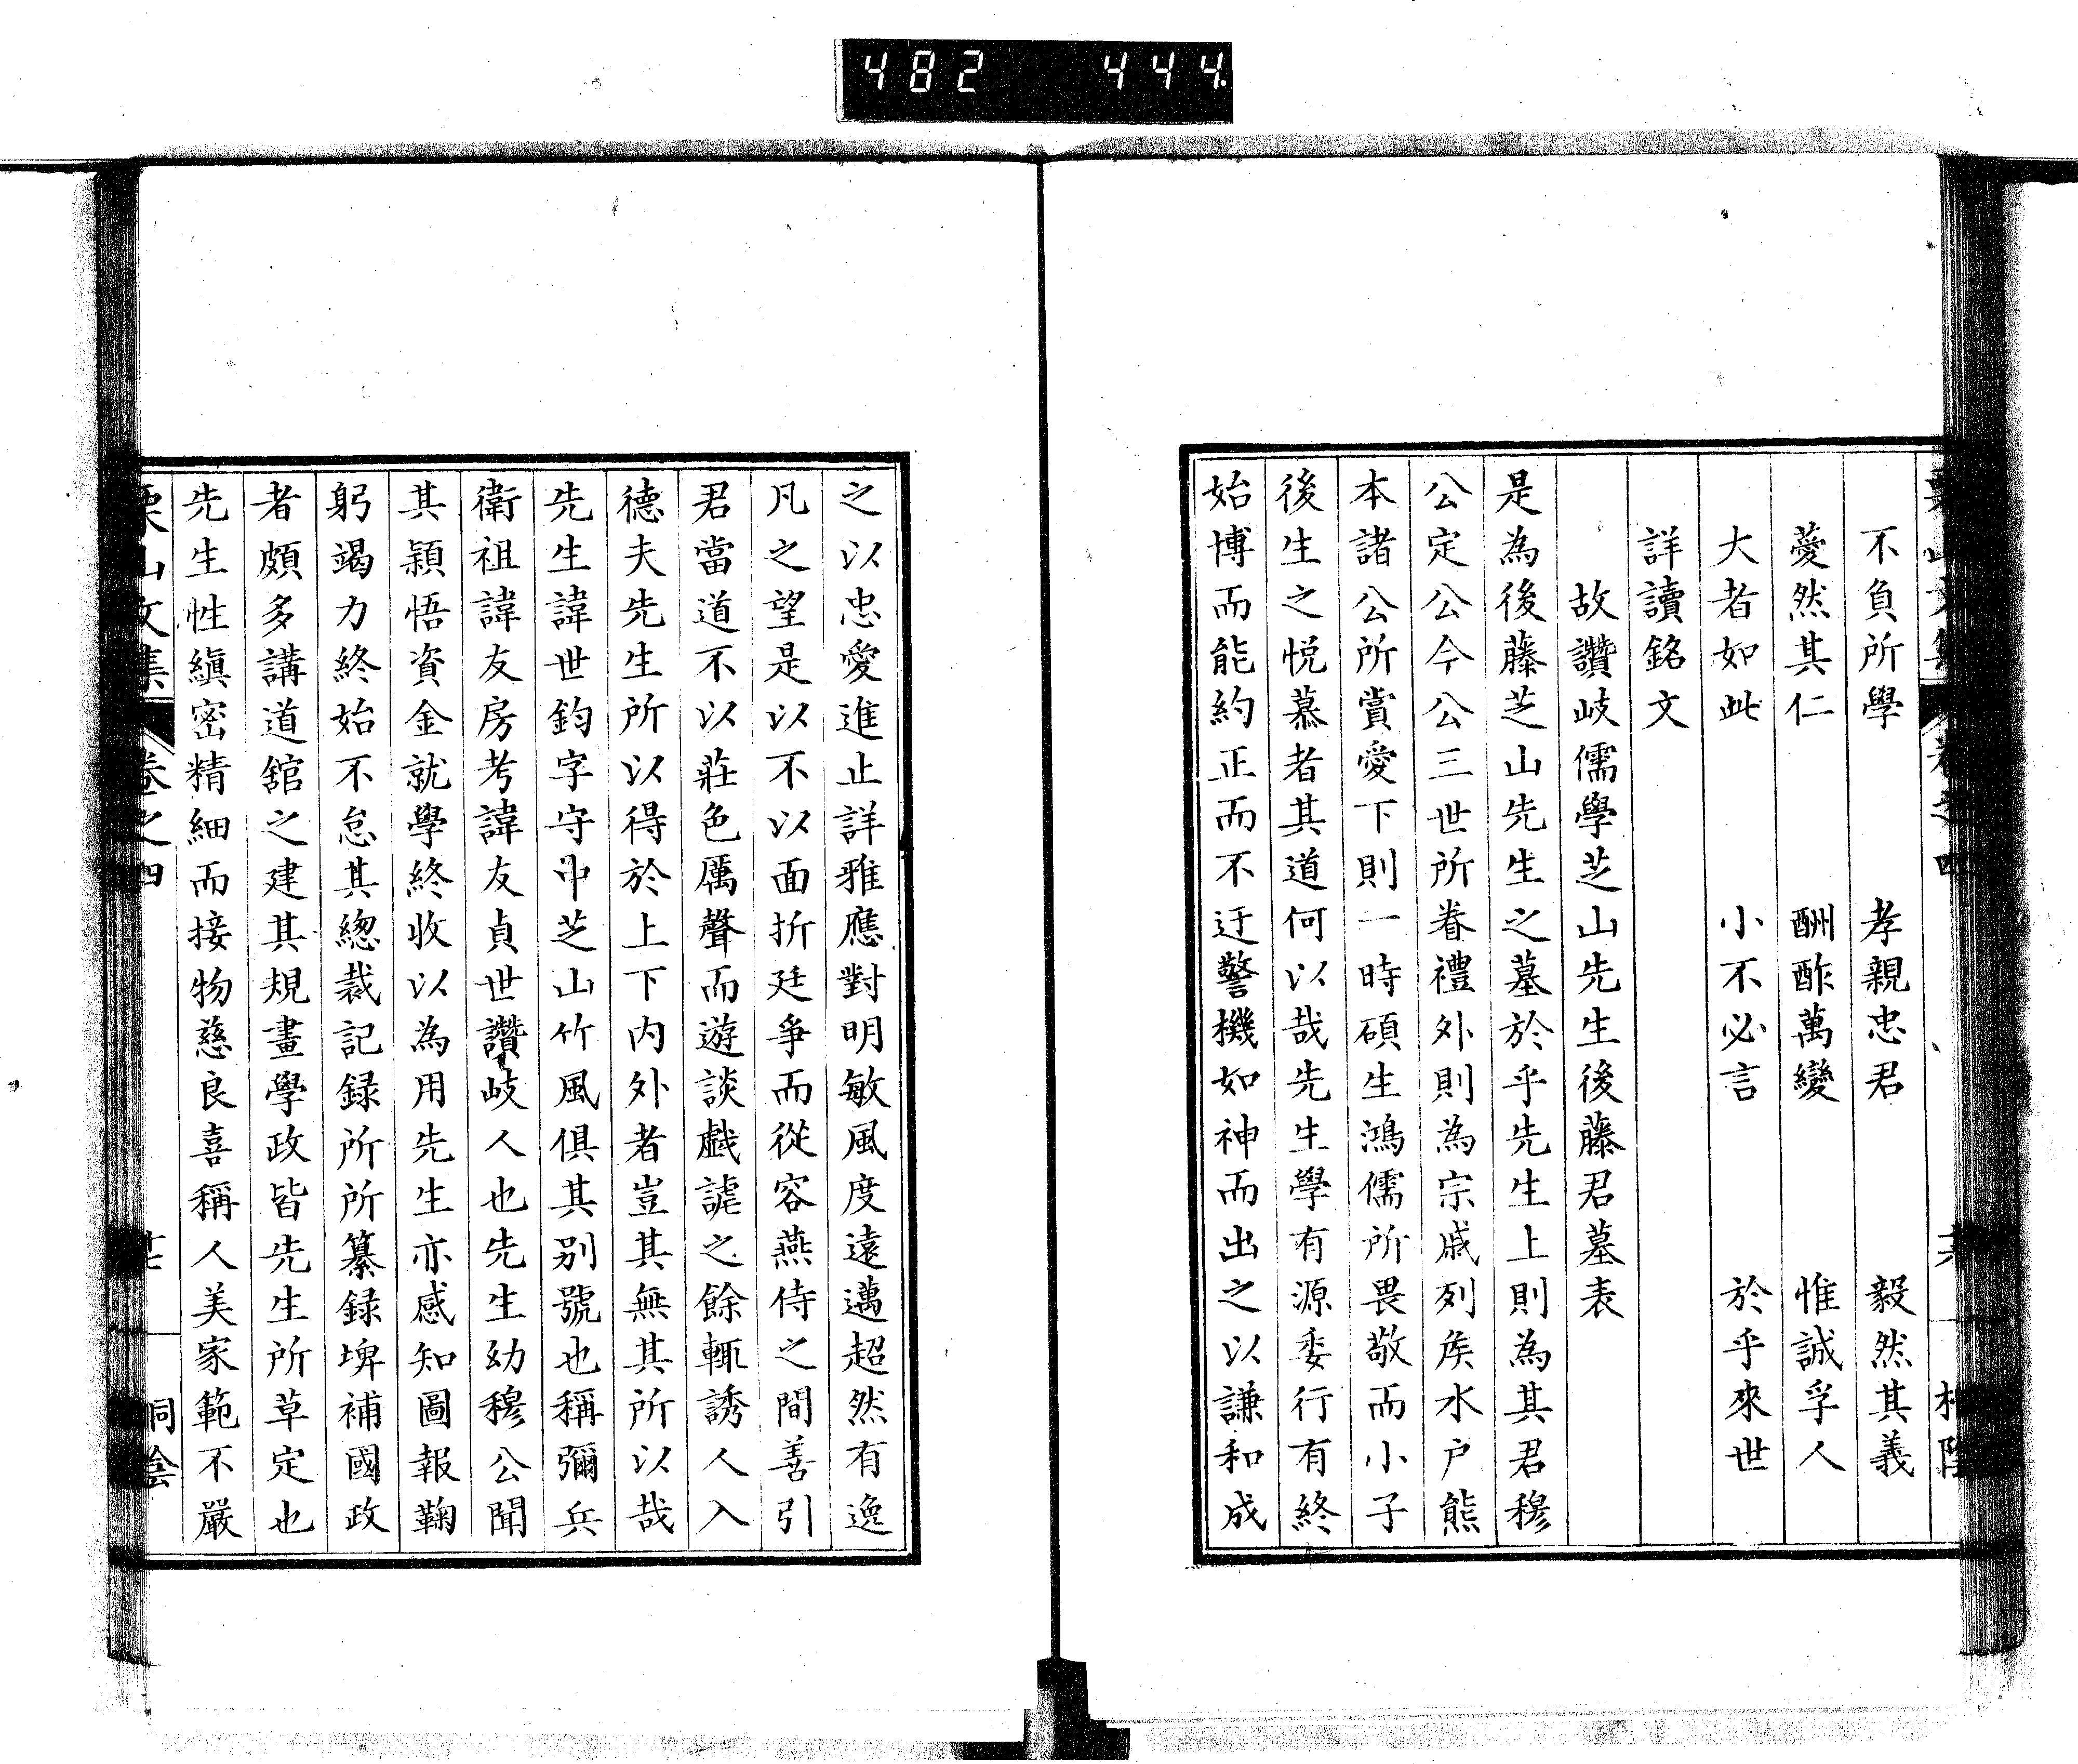 482 444
栗山文集 卷之四
不負所學 孝親忠君 毅然其義
薆然其仁 酬酢萬變 惟誠孚人
大者如此 小不必言 於乎來世
詳讀銘文
故讚岐儒學芝山先生後藤君墓表
是為後藤芝山先生之墓於乎先生上則為其君穆
公定公今公三世所眷禮外則為宗戚列矦水戶熊
本諸公所賞愛下則一時碩生鴻儒所畏敬而小子
後生之悦慕者其道何以哉先生學有源委行有終
始博而能約正而不迂警機如神而出之以謙和成
之以忠愛進止詳雅應對明敏風度遠邁超然有逸
凡之望是以不以面折廷爭而從容燕侍之間善引
君當道不以莊色厲聲而遊談戲謔之餘輒誘人入
德夫先生所以得於上下内外者豈其無其所以哉
先生諱世鈞字守中芝山竹風俱其別號也稱彌兵
衛祖諱友房考諱友貞世讚岐人也先生幼穆公聞
其穎悟資金就學終收以為用先生亦感知圖報鞠
躬竭力終始不怠其緫裁記録所所纂録埤補國政
者頗多講道舘之建其規畫學政皆先生所草定也
先生性縝密精細而接物慈良喜稱人美家範不嚴
栗山文集 卷之四 桐陰